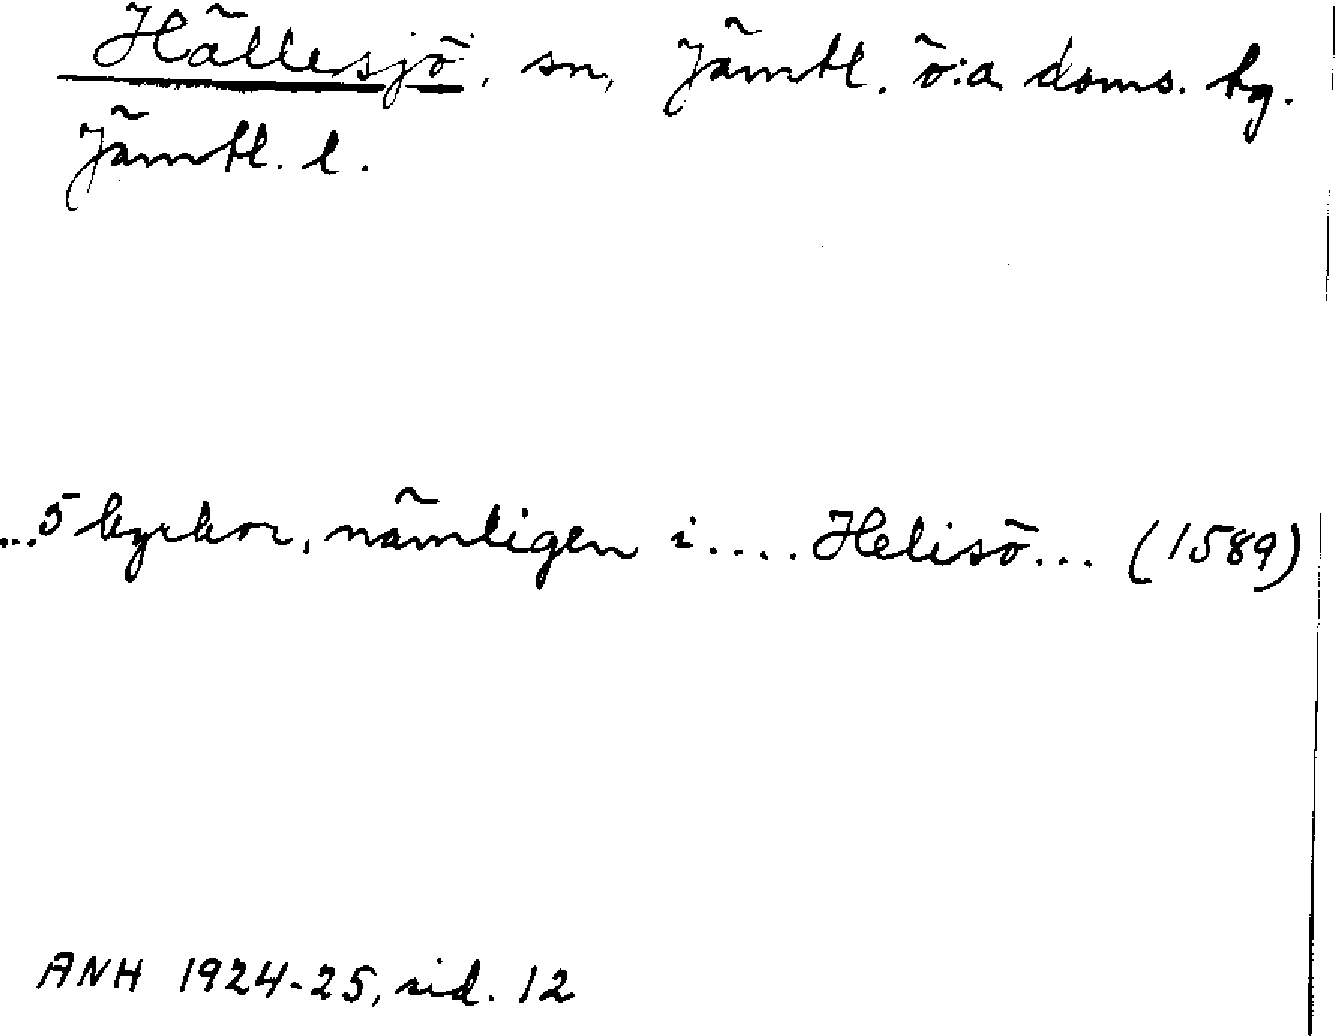 Hällesjö, sn, Jämtl. ö:a doms. tg.
Jämtl. l.
...5 kyrkor, nämligen i .... Helisö... (1589)
ANH 1924-25, sid. 12